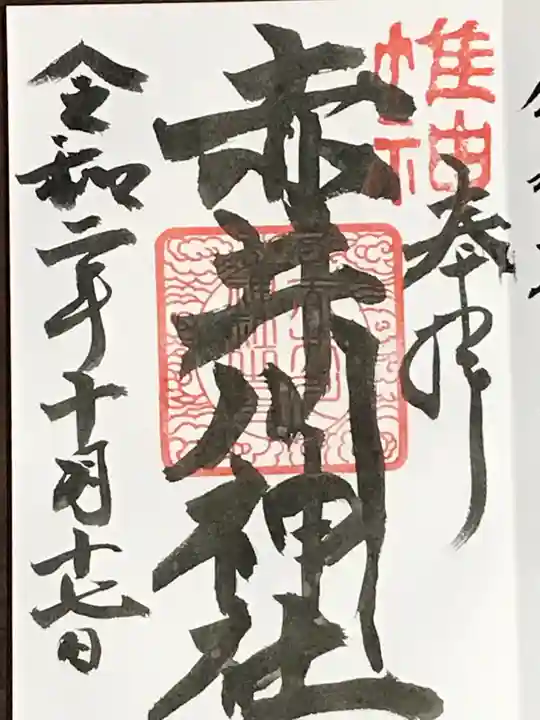 惟神
奉拝
赤井川神社
令和二年十月十七日